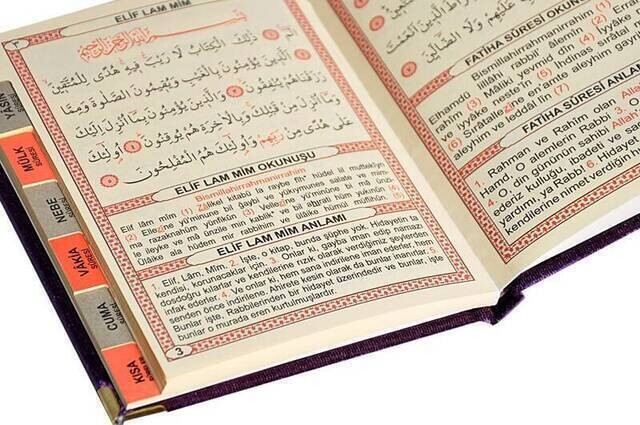 ELİF LAM MİM
٣
ذٰلِكَ الْكِتَابُ لَا رَيْبَ فِيهِ هُدًى لِلْمُتَّقِينَ
الَّذِينَ يُؤْمِنُونَ بِالْغَيْبِ وَيُقِيمُونَ الصَّلٰوةَ وَمِمَّا
رَزَقْنَاهُمْ يُنْفِقُونَ وَالَّذِينَ يُؤْمِنُونَ بِمَا أُنْزِلَ إِلَيْكَ
وَمَا أُنْزِلَ مِنْ قَبْلِكَ وَبِالْآخِرَةِ هُمْ يُوقِنُونَ أُولٰئِكَ
عَلٰى هُدًى مِنْ رَبِّهِمْ وَأُولٰئِكَ هُمُ الْمُفْلِحُونَ
ELİF LAM MİM OKUNUŞU
Bismillahirrahmanirrahim
Elif lâm mîm (1) Zâlikel kitabü la raybe fih* hüdel lil müttekîyn
(2) Ellezine yü'minune bil ğaybi ve yükıymunes salate ve mim-
ma razaknahüm yünfikun (3) Vellezine yü'minune bi mâ ünzi-
le ileyke ve mâ ünzile min kablik* ve bil ahırati hüm yukınun (4)
Ülâike ala hüdem mir rabbihim ve ülâike hümül müflihûn (5)
ELİF LAM MİM ANLAMI
1. Elif, Lâm, Mîm. 2. İşte, o kitap, bunda şüphe yok. Hidayetin ta
kendisi, korunacaklar için. 3. Onlar ki, gayba iman edip namazı
dosdoğru kılarlar ve kendilerine rızık olarak verdiğimiz şeylerden
infak ederler. 4. Ve onlar ki, hem sana indirilene iman ederler, hem
senden önce indirilene. Ahirete kesin olarak da bunlar inanırlar.
Bunlar işte, Rabbilerinden bir hidayet üzerindedir ve bunlar, işte
bunlar o murada eren kurtulmuşlardır.
3
YÂSİN
SÛRESİ
MÜLK
SÛRESİ
NEBE
SÛRESİ
VÂKIA
SÛRESİ
CUMA
SÛRESİ
KISA
SÛRELER
عَلَيْهِمْ وَلَا الضَّالِّينَ
FATİHA SÛRESİ OKUNUŞU
Bismillahirrahmanirrahim (1)
Elhamdü lillahi rabbil' âlemîn
Mâliki yevmid dîn (4)
ve iyyâke neste'în (5) İhdinas sıratal
(6) Sırâtallezîne en'amte aleyhim ğayril
aleyhim ve leddâl lîn (7)
FATİHA SÛRESİ ANLA
Rahman ve Rahîm olan Alla
Hamd, O alemlerin Rabbi 3.
4. O din gününün sahibi Allah
ederiz kulluğu, ibadeti ve s
yardımı, ya Rab! 6. Hidayet
kendilerine nimet verdiğin m